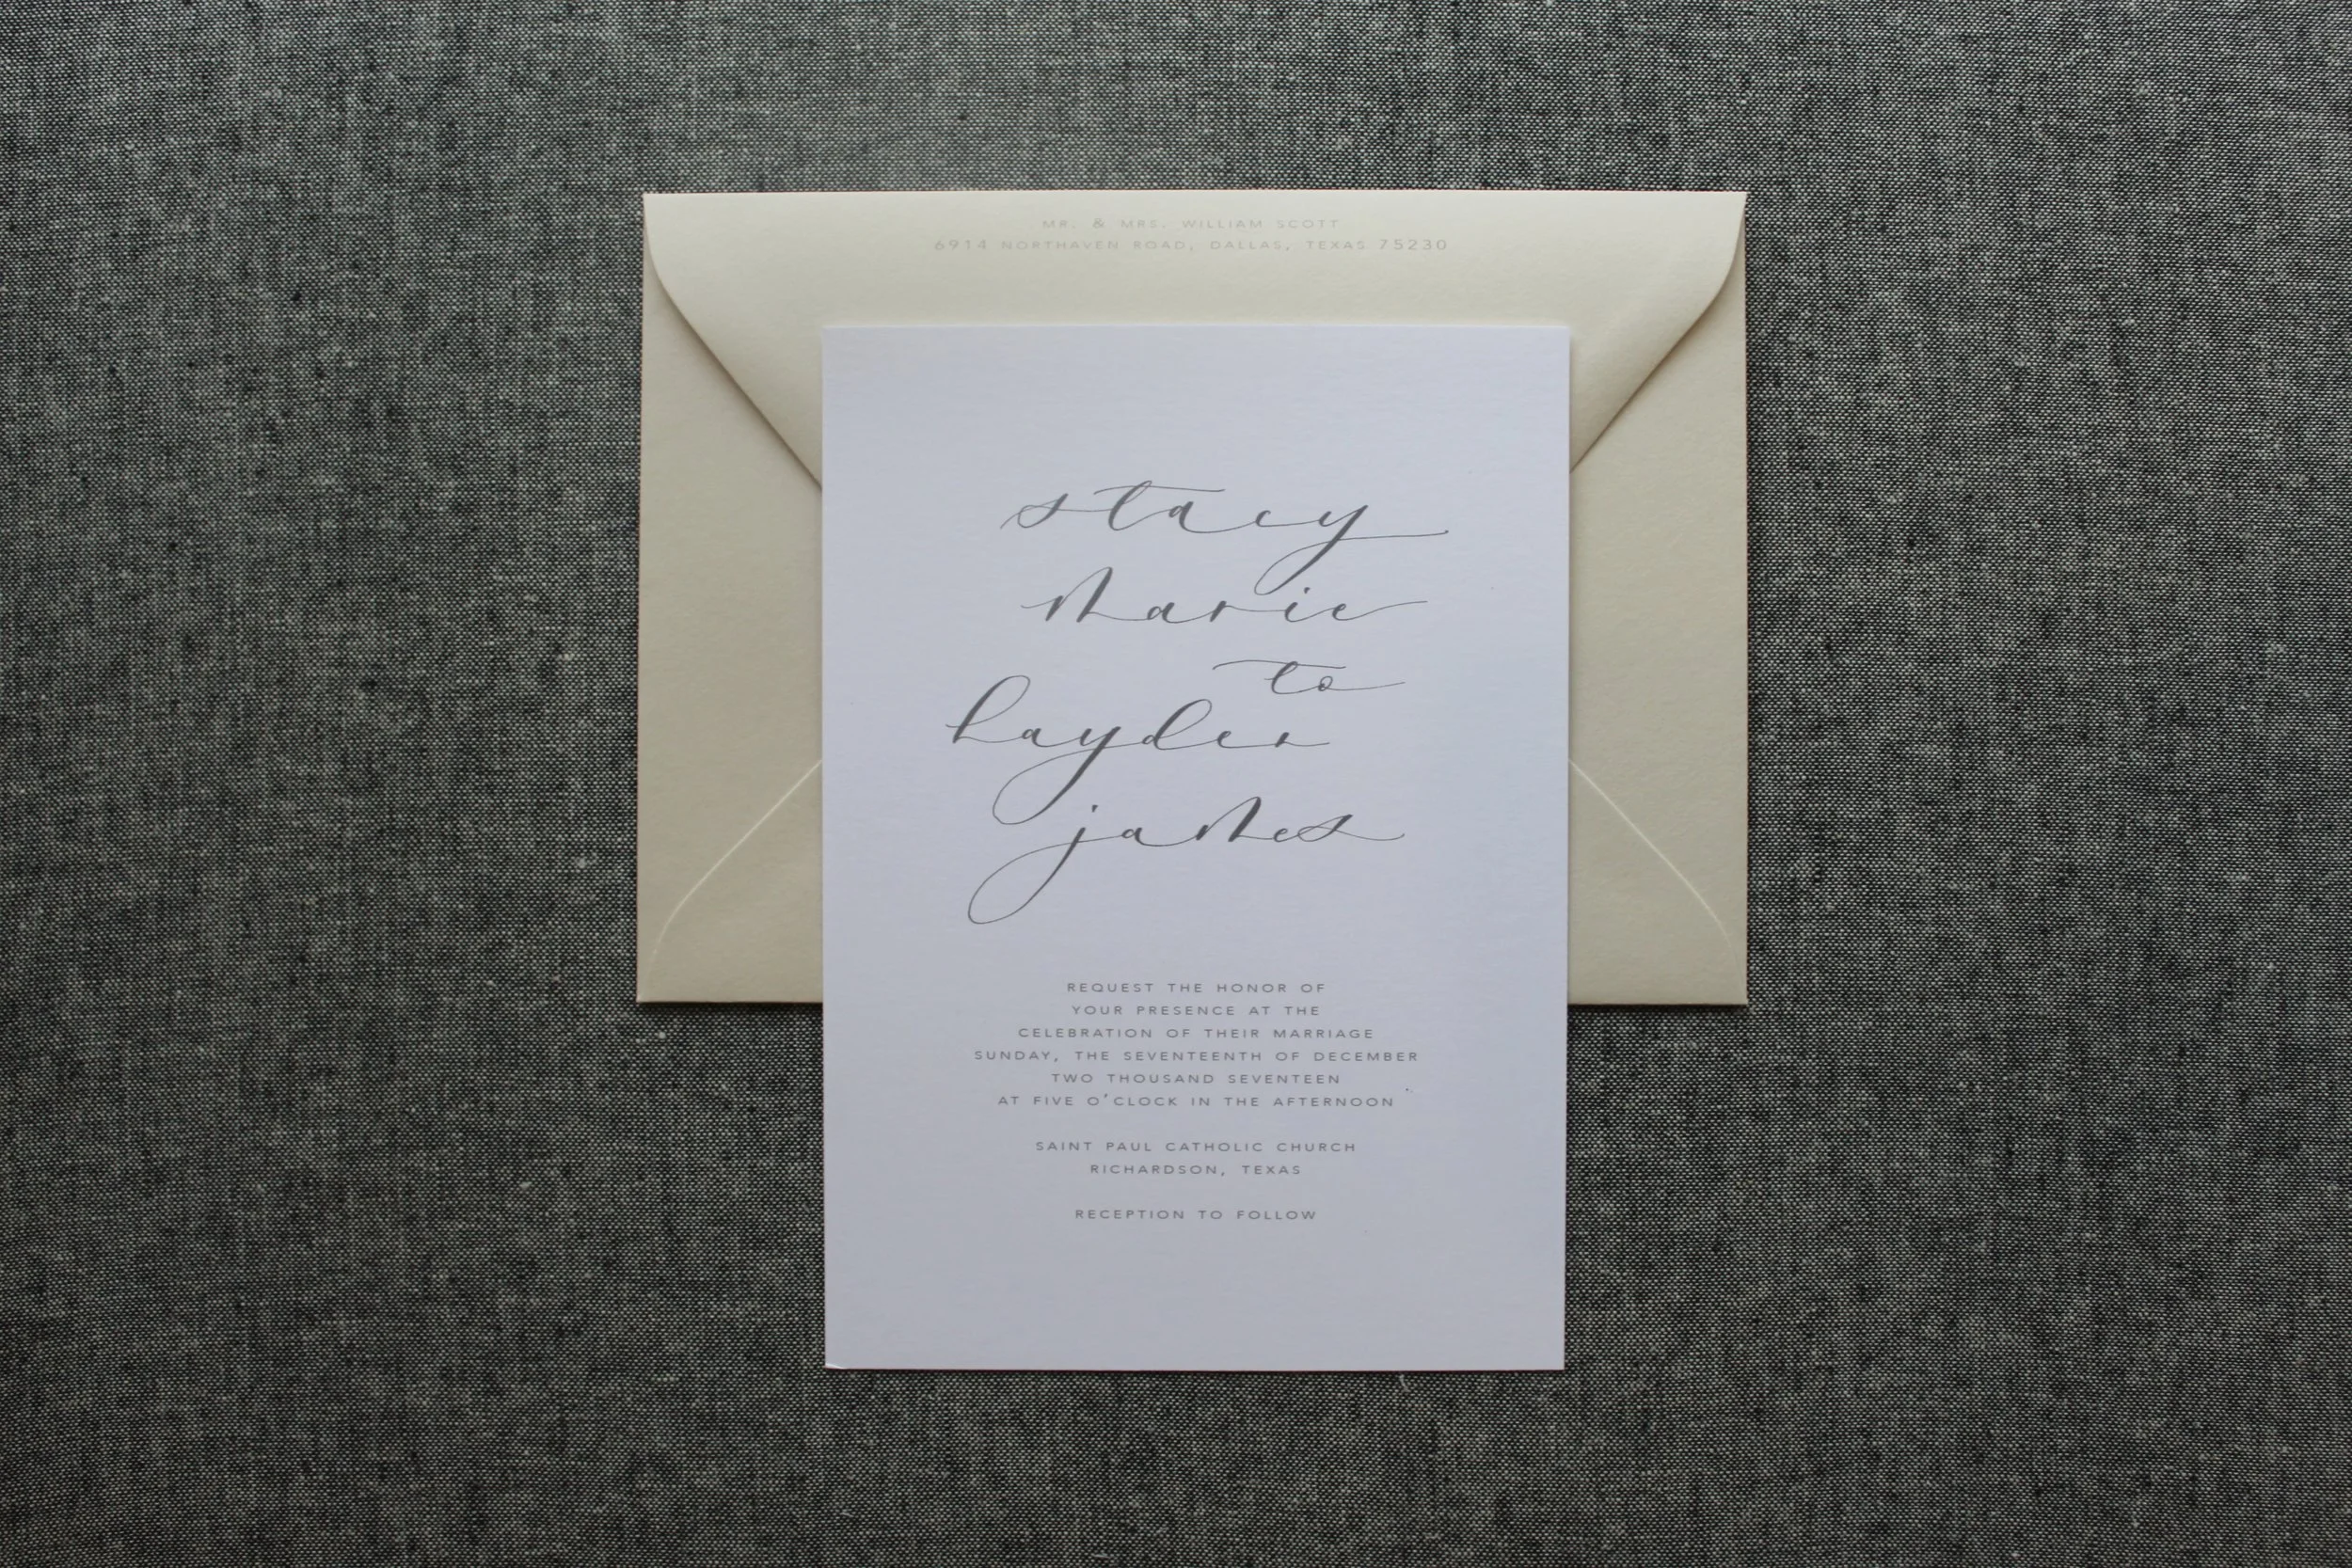 MR. & MRS. WILLIAM SCOTT
6914 NORTHAVEN ROAD, DALLAS, TEXAS 75230
stacy
marie
to
hayden
james
REQUEST THE HONOR OF
YOUR PRESENCE AT THE
CELEBRATION OF THEIR MARRIAGE
SUNDAY, THE SEVENTEENTH OF DECEMBER
TWO THOUSAND SEVENTEEN
AT FIVE O'CLOCK IN THE AFTERNOON
SAINT PAUL CATHOLIC CHURCH
RICHARDSON, TEXAS
RECEPTION TO FOLLOW